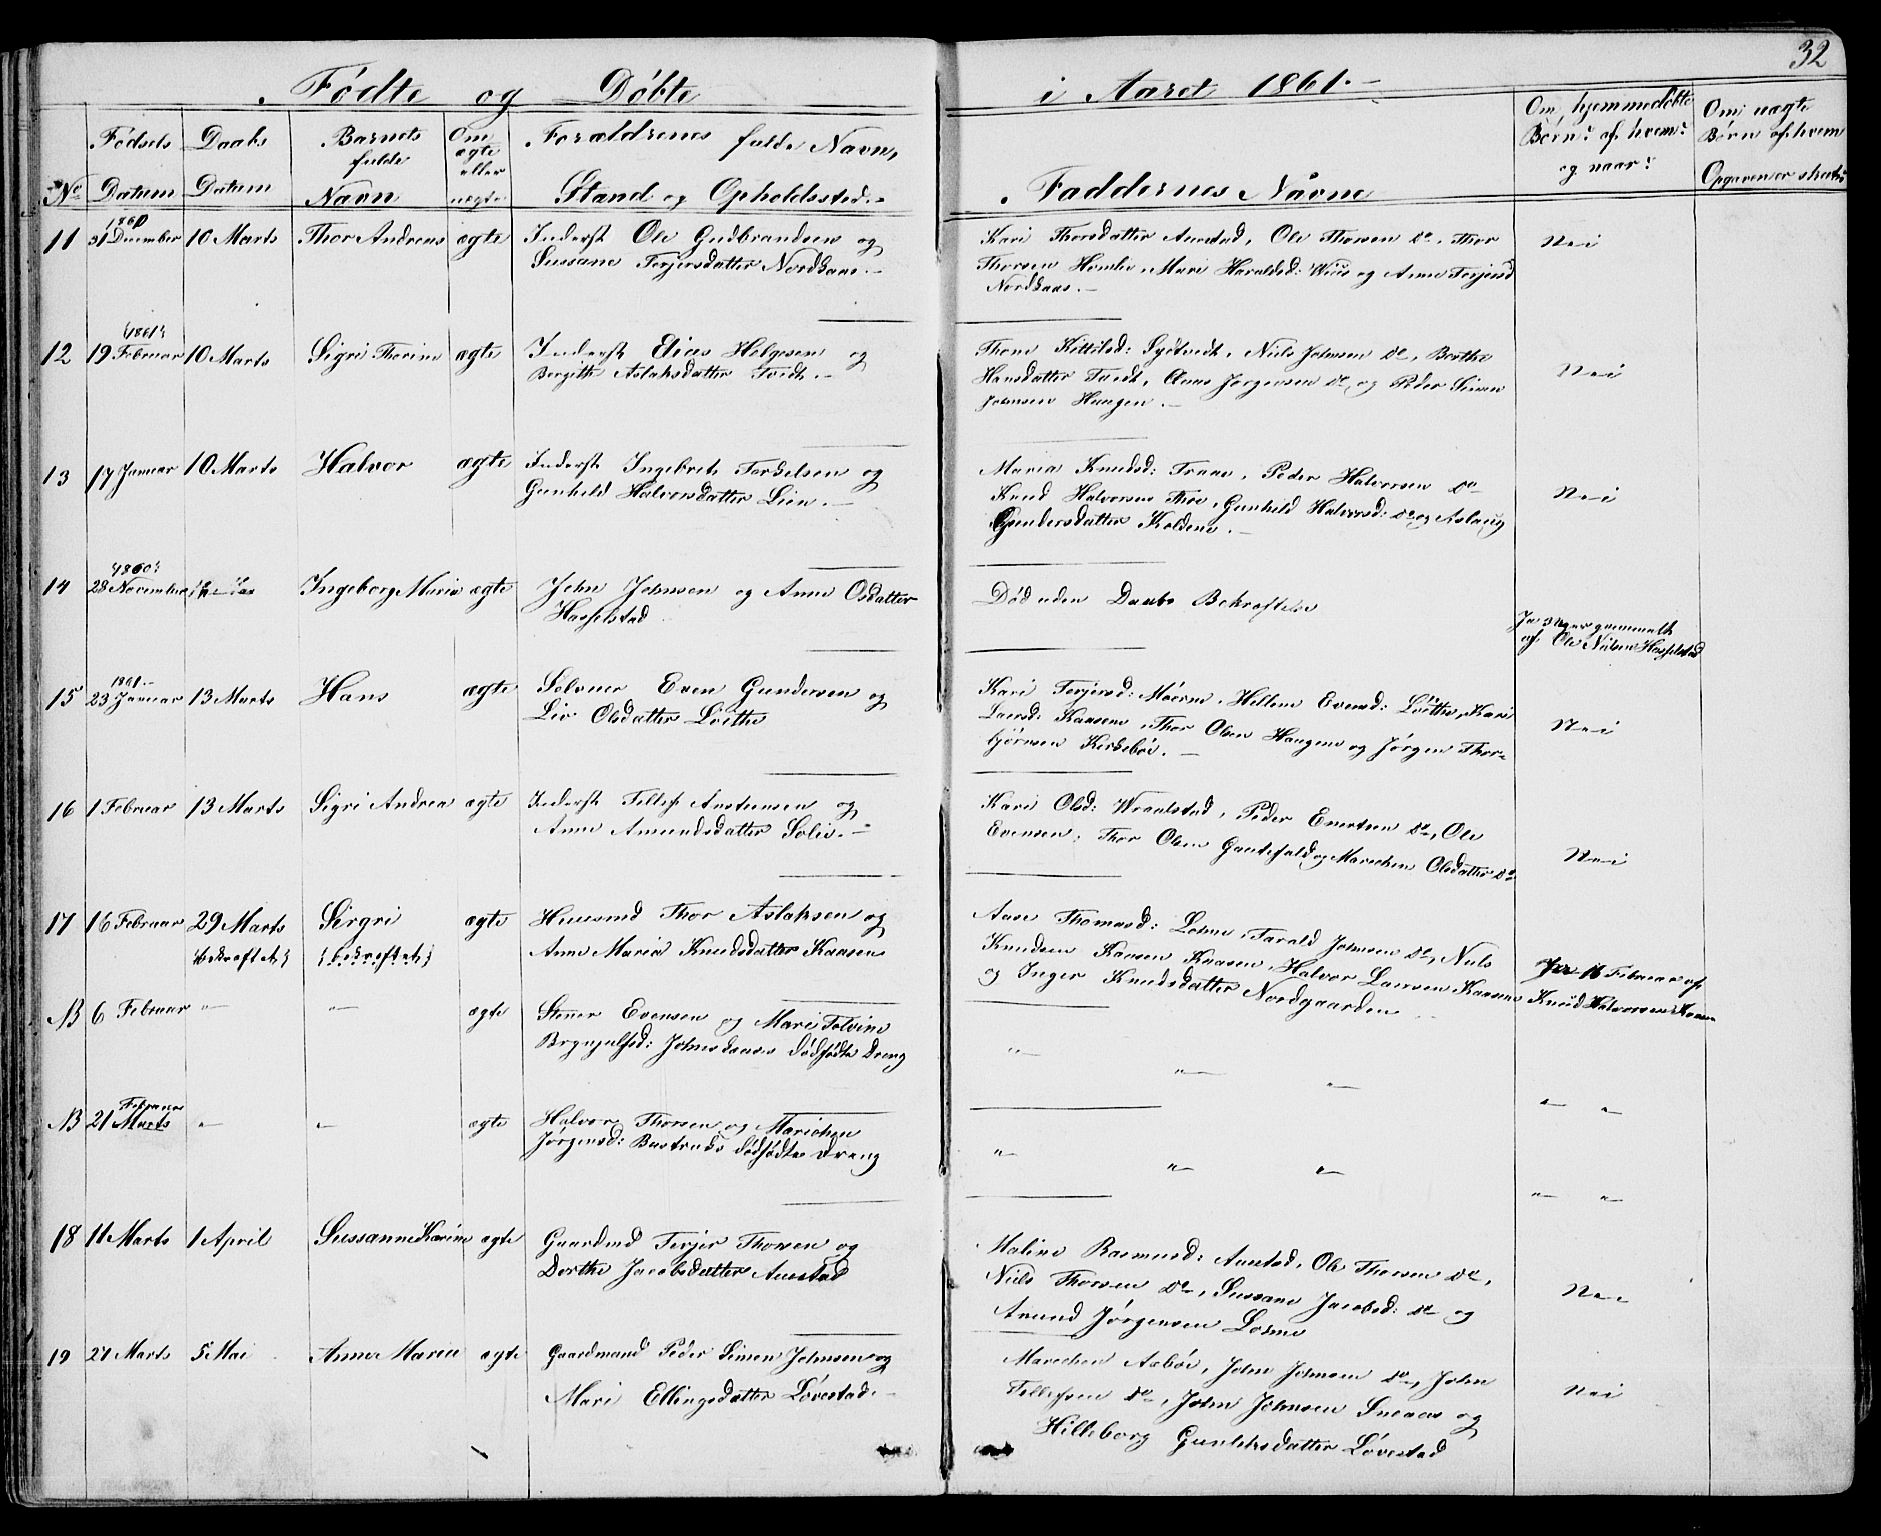 32
Fødte og Døbte i Aaret 1861.
No
Fødsels Datum
Daabs Datum
Barnets fulde Navn
Om ægte eller uægte
Forældrenes fulde Navn,
Stand og Opholdssted.
Faddernes Navne
Om hjemmedøbte Børn? af hvem? og naar?
Om uægte Børn af hvem Opgaven er skeet
11 1860 31 December 10 Marts Thor Andreas ægte Inderst Ole Gudbrandsen og
Sussane Terjersdatter Nordkaas.
Kari Thorsdatter Aanstad, Ole Thorsen do, Thor
Thorsen Homlie, Mari Haraldsd: og Anne Terjersd
Nordkaas.
Nei
12 1861 19 Februar 10 Marts Sigri Thorine ægte Inderst Elias Helgesen og
Bergithe Aslaksdatter Tvedt.
Thone Kittilsd: Sydtvedt, Niels Johnsen do, Berthe
Hansdatter Tvedt, Claus Jørgensen do og Peder Simon
Johnsen Haugen.
Nei
13 17 Januar 10 Marts Halvor ægte Inderst Ingebret Terkelsen og
Gunhild Halvorsdatter Lien.
Maria Knudsd: Traae, Peder Halvorsen do
Knud Halvorsen Thoe, Gunhild Halvorsd: do og Aslaug
Gundersdatter Koldene.
Nei
14 1860 28 November Ingeborg Maria ægte John Johnsen og Anne Olsdatter
Hasselstad
Død uden Daabs Bekræftelse
Ja 3 Uger gammelt
af Ole Nilsen Hasselstad
15 1861 23 Januar 13 Marts Hans ægte Selveier Even Gundersen og
Liv Olsdatter Løithe
Kari Terjersd: Moerne, Hellene Evensd: Løithe, Kari
Larsd: Kaasene, Thor Olsen Haugene og Jørgen Thor-
bjørnsen Kirkebøe.
Nei
16 1 Februar 13 Marts Sigri Andrea ægte Inderst Tellef Anstensen og
Anne Amundsdatter Solie.
Kari Olsd: Wraalstad, Peder Evertsen do, Ole
Evensen, Thor Olsen Gautefald og Marichen Olsdatter do
Nei
17 16 Februar 29 Marts Sirgri ægte Huusmd Thor Aslaksen og
(bekræftet) (bekræftet) Anne Maria Knudsdatter Kaasene
Aase Thomasd: Lone, Tarald Johnsen do, Niels
Knudsen Kaasen Kaasen, Halvor Larsen Kaasene
og Inger Knudsdatter Nordgaarden
Ja 16 Februar af
Knud Halvorsen Kaasen
NB 6 Februar " " ægte Stener Evensen og Mari Tolvine
Brynjulfsd: Johnsdaases dødfødte Dreng
" " "
" "
NB 21 Februar Marts " " ægte Halvor Thorsen og Marichen
Jørgensd: Bustruds dødfødte Dreng
" " "
" "
18 11 Marts 1 April Sussanne Karine ægte Gaardmd Terjer Thorsen og
Dorthe Jacobsdatter Aanstad
Maline Rasmusd: Aanstad, Ole Thorsen do,
Niels Thorsen do, Sussane Jacobsd: do og
Amund Jørgensen Lone
Nei
19 27 Marts 5 Mai Anne Maria ægte Gaardmand Peder Simon Johnsen og
Mari Ellingsdatter Løvestad
Marichen Aasbøe, John Johnsen do, John
Tellefsen do, John Johnsen Sneaas og
Hilleborg Gunleksdatter Løvestad
Nei